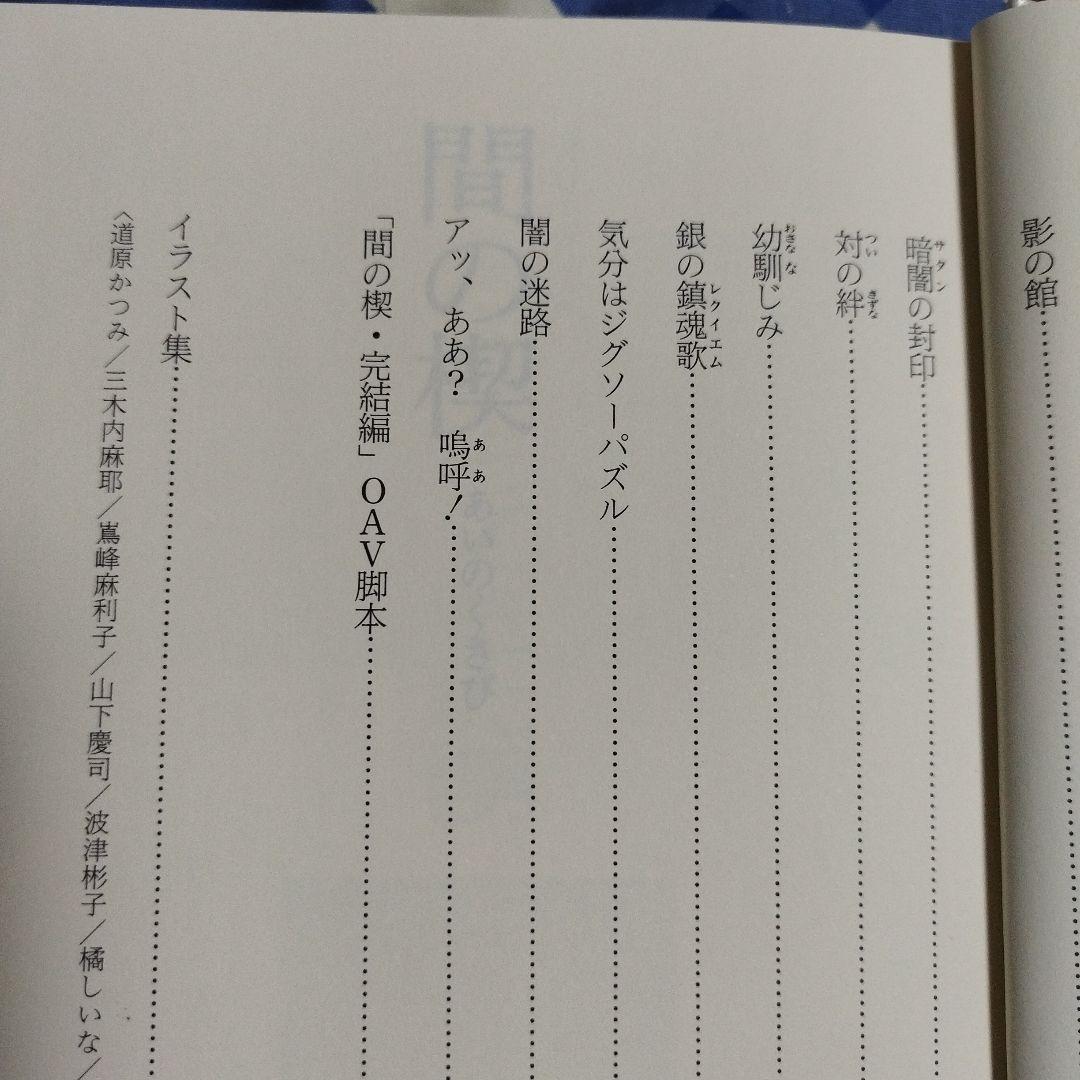 影の館
暗闇の封印
サタン
対の絆
つい
きずな
幼馴じみ
おさな
な
銀の鎮魂歌
レクイエム
気分はジグソーパズル
闇の迷路
アッ、ああ？ 嗚呼！
ああ
「間の楔・完結編」 OAV脚本
イラスト集
〈道原かつみ／三木内麻耶／嶌峰麻利子／山下慶司／波津彬子／橘しいな／
間の楔
あいのくさび